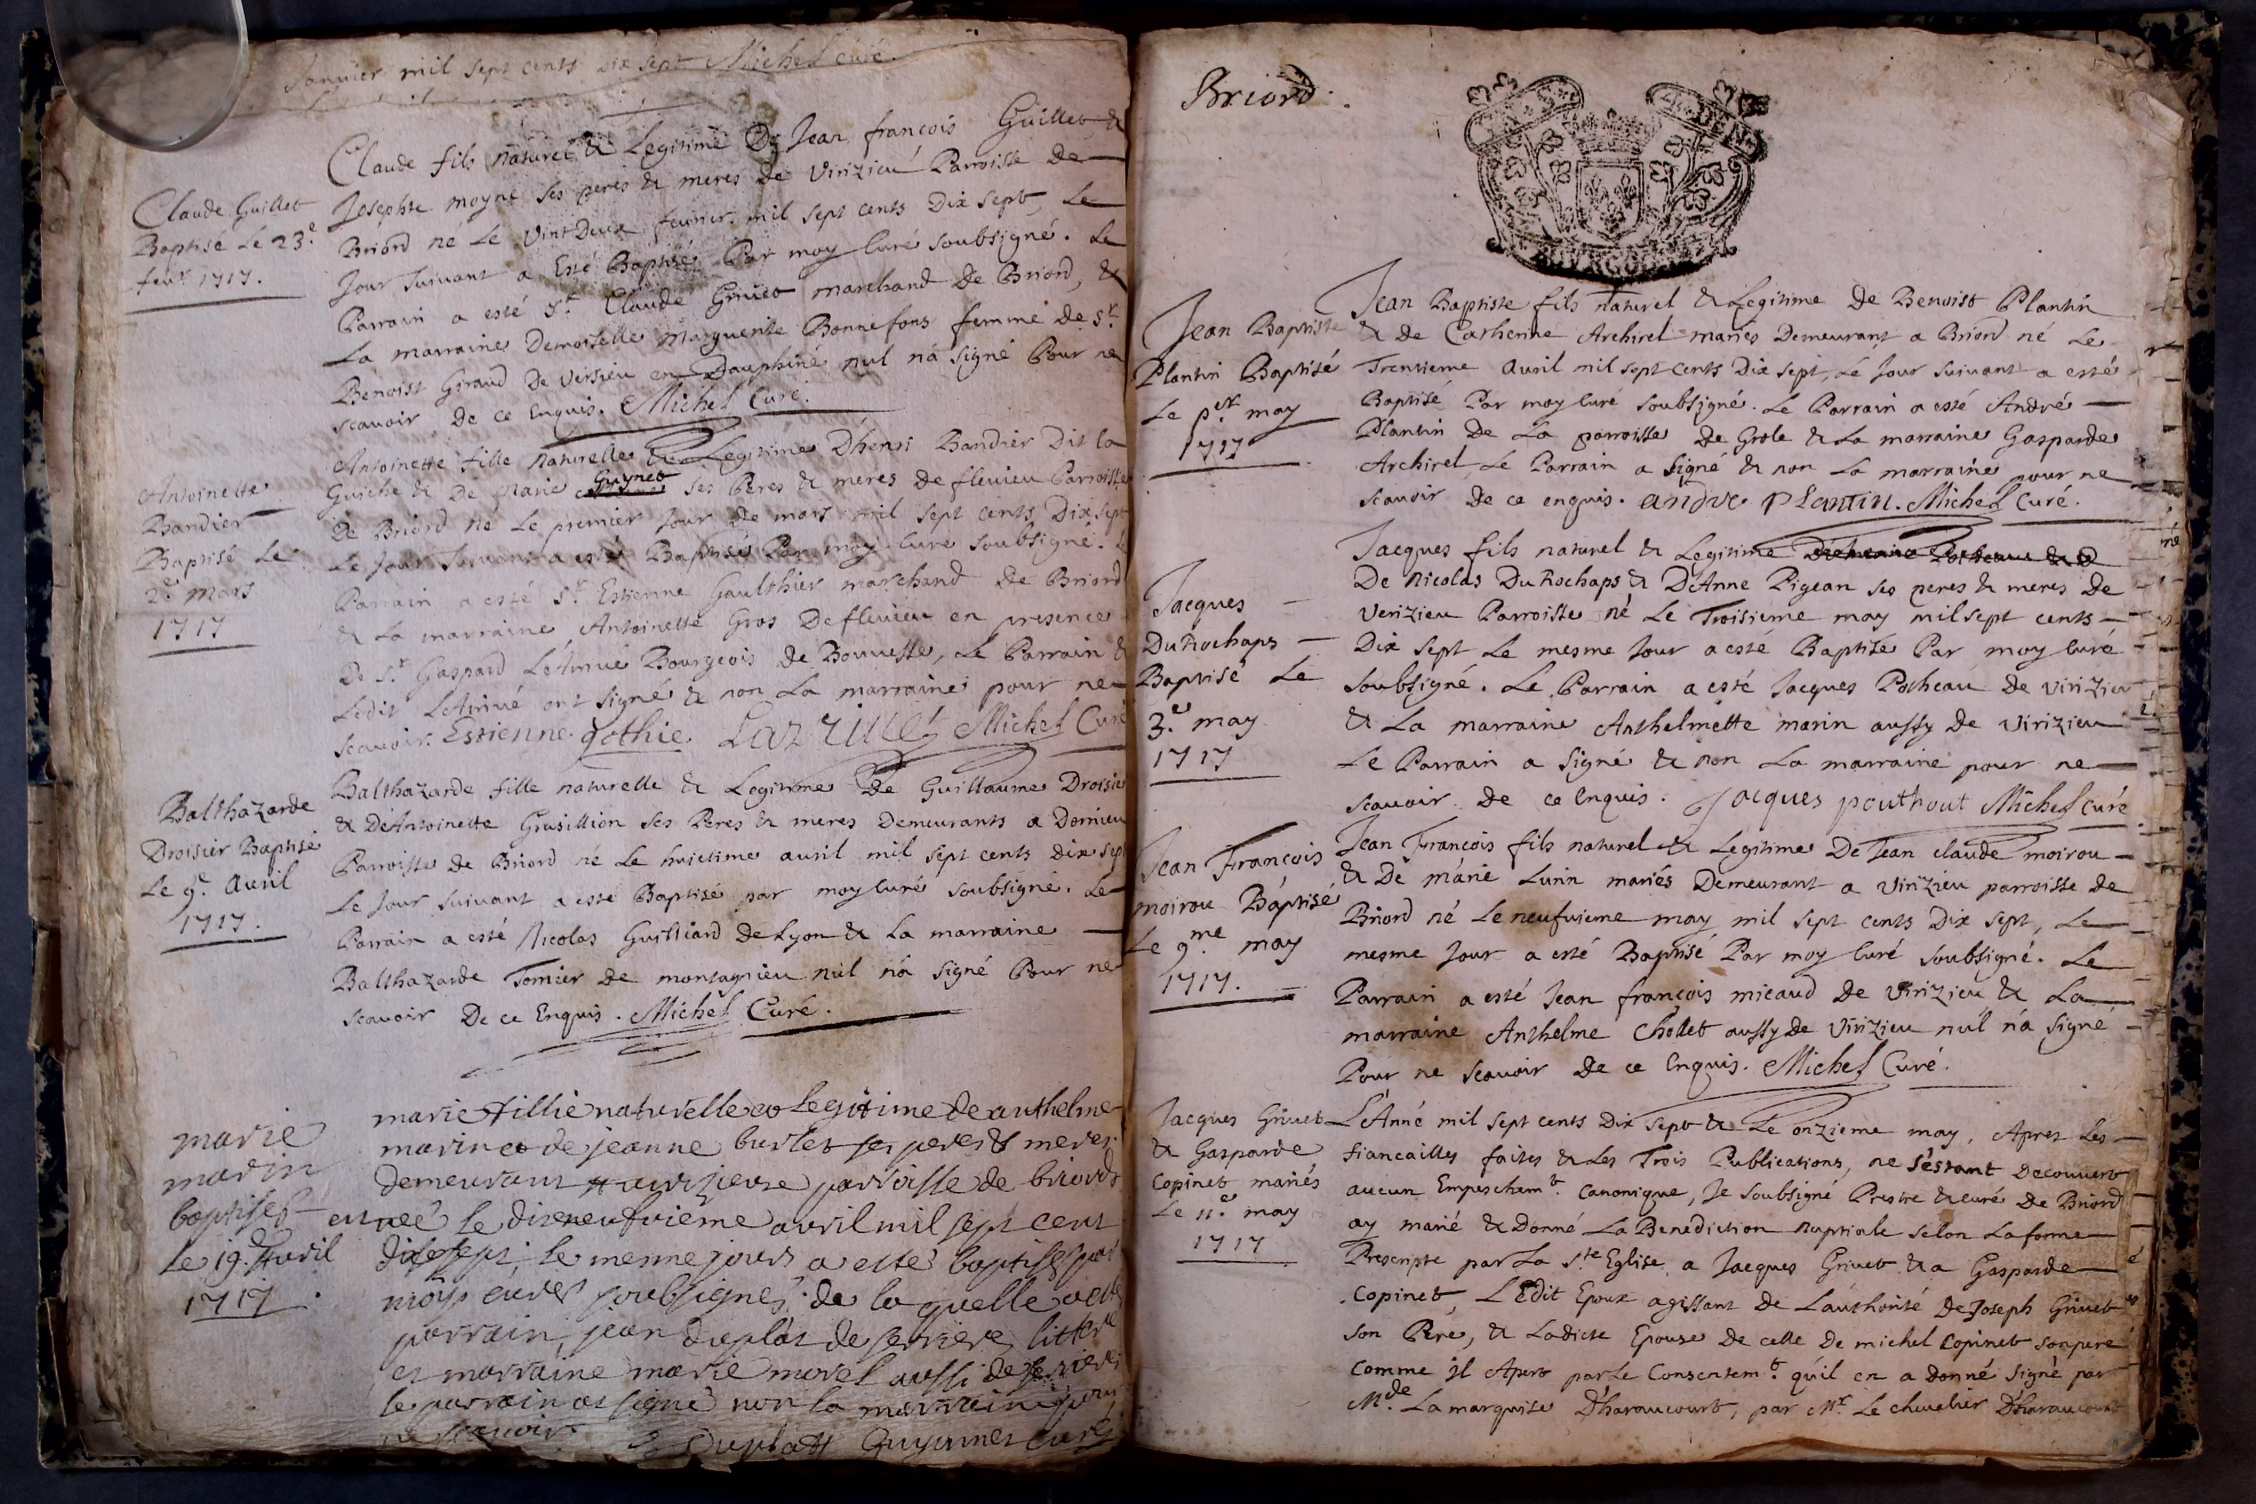 Janvier mil sept cents dix sept Michel Curé.
Claude Guillet
Baptisé Le 23.e
feur 1717.
Claude fils naturel & Legitime De Jean françois Guillet &
Josephte moyne ses peres & meres de Virizieu Parroisse De
Briord né Le Vint Deux feurier mil sept cents Dix Sept, Le
Jour Suivant a Esté Baptisé Par moy Curé soubsigné. Le
Parrain a esté Sr. Claude Griuet marchand de Briord, &
La marraine Demoiselle Marguerite Bonnefons femme de Sr.
Benoist Giraud De Veissieu en Dauphiné nul n'a signé Pour ne
scavoir de ce Enquis. Michel Curé.
Antoinette
Bandier
Baptisé Le
2.e mars
1717
Antoinette fille Naturelle & Legitime D'henri Bandier Dit la
Guiche & De Marie Guynet ses Peres & meres de fleuieu Parroisse
De Briord né Le premier Jour de mars mil sept cents Dix sept
Le Jour Suivant a esté Baptisé Par moy Curé soubsigné. L
Parrain a esté Sr. Estienne Gaulthier marchand de Briord
& La marraine Antoinette Gros De fleuieu en presence
De Sr. Gaspard L'éArriué Bourgeois de Bouuesse, Le Parrain &
Ledit LeArriué ont signé & non La marraine pour ne
scavoir. Estienne gothie Larriué Michel Curé
Balthazarde
Droisier Baptisé
Le 9.e Auril
1717.
Balthazarde fille naturelle & Legitime De Guillaume Droisie
& DeAntoinette Grusillion ses Peres & meres Demeurants a Dornieu
Parroisse de Briord né Le huictime auril mil sept cents dix sep
Le Jour suivant a esté Baptisé par moy Curé soubsigné. Le
Parrain a esté Nicolas Guilliard de Lyon & La marraine
Balthazarde Tornier de montagnieu nul n'a signé Pour ne
scavoir De ce Enquis. Michel Curé.
marie
marin
baptises
le 19.e Auril
1717.
marie fillie naturelle et legitime de anthelme
marin et de jeanne burlet ses peres & meres
demeurant a virizieux parroisse de briord
et neé le dixneufuiéme avril mil sept cent
dix sept le mesme jour a esté baptisé par
moys curés soubsignés. de la quelle a esté
parrain, jean duplàt de serriere
et marraine marie morel aussi de serriere
le parrain at signé non la marraine pour
ne scavoir Duplatt Guyonnet curés
Briord.
Jean Baptiste
Plantin Baptisé
Le per may
1717
Jean Baptiste fils naturel & Legitime De Benoist Plantin
& de Catherine Archirel mariés Demeurant a Briord né Le
Trentieme Auril mil sept cents Dix sept, Le Jour Suivant a esté
Baptisé Par moy Curé Soubsigné. Le Parrain a esté André
Plantin De La parroisse de Grole & La marraine Gasparde
Archirel Le Parrain a Signé & non La marraine pour ne
scavoir de ce enquis. andre Plantin. Michel Curé.
Jacques
DuRochaps
Baptisé Le
3.e may
1717
Jacques fils naturel & Legitime
De Nicolas DuRochaps & D'Anne Pigean ses peres & meres de
Verizieu Parroisse né Le Troisieme may mil sept cents
Dix Sept Le mesme Jour a esté Baptisé Par moy Curé
Soubsigné. Le Parrain a esté Jacques Potheau de virizieu
& La marraine Anthelmette marin aussy de virizieu
Le Parrain a Signé & non La marraine pour ne
scavoir de ce Enquis. Jacques pouthout Michel Curé
Jean François
moirou Baptisé
Le 9me may
1717.
Jean François fils naturel & Legitime De Jean claude moirou
& De marie Lurin mariés Demeurant a Virizieu parroisse de
Briord né Le neufuieme may mil sept cents Dix Sept, Le
mesme Jour a esté Baptisé Par moy Curé Soubsigné. Le
Parrain a esté Jean françois micaud de Virizieu & La
marraine Anthelme Chollet aussy de Virizieu nul n'a Signé
Pour ne scavoir De ce Enquis. Michel Curé.
Jacques Griuet
& Gasparde
Copinet mariés
Le 11.e may
1717
L'Anné mil sept cents Dix Sept & Le onzieme may, Apres Les
fiancailles faites & Les Trois Publications, ne s'estant Decouvert
aucun Empeschemt. Canonique, Je soubsigné Prestre & curé De Briord
ay marié & Donné La Benediction nuptiale selon La forme
Prescripte par La Ste. Eglise a Jacques Griuet & a Gasparde
Copinet, L'Edit Epoux agissant de L'authorité de Joseph Griuet
son Pere, & Ladicte Epouse de celle de michel Copinet son pere
comme Jl Apert par Le Consentemt. qu'il en a Donné signé par
Mde. La marquise D'haraucourt, par Mr. Le cheualier D'haraucourt